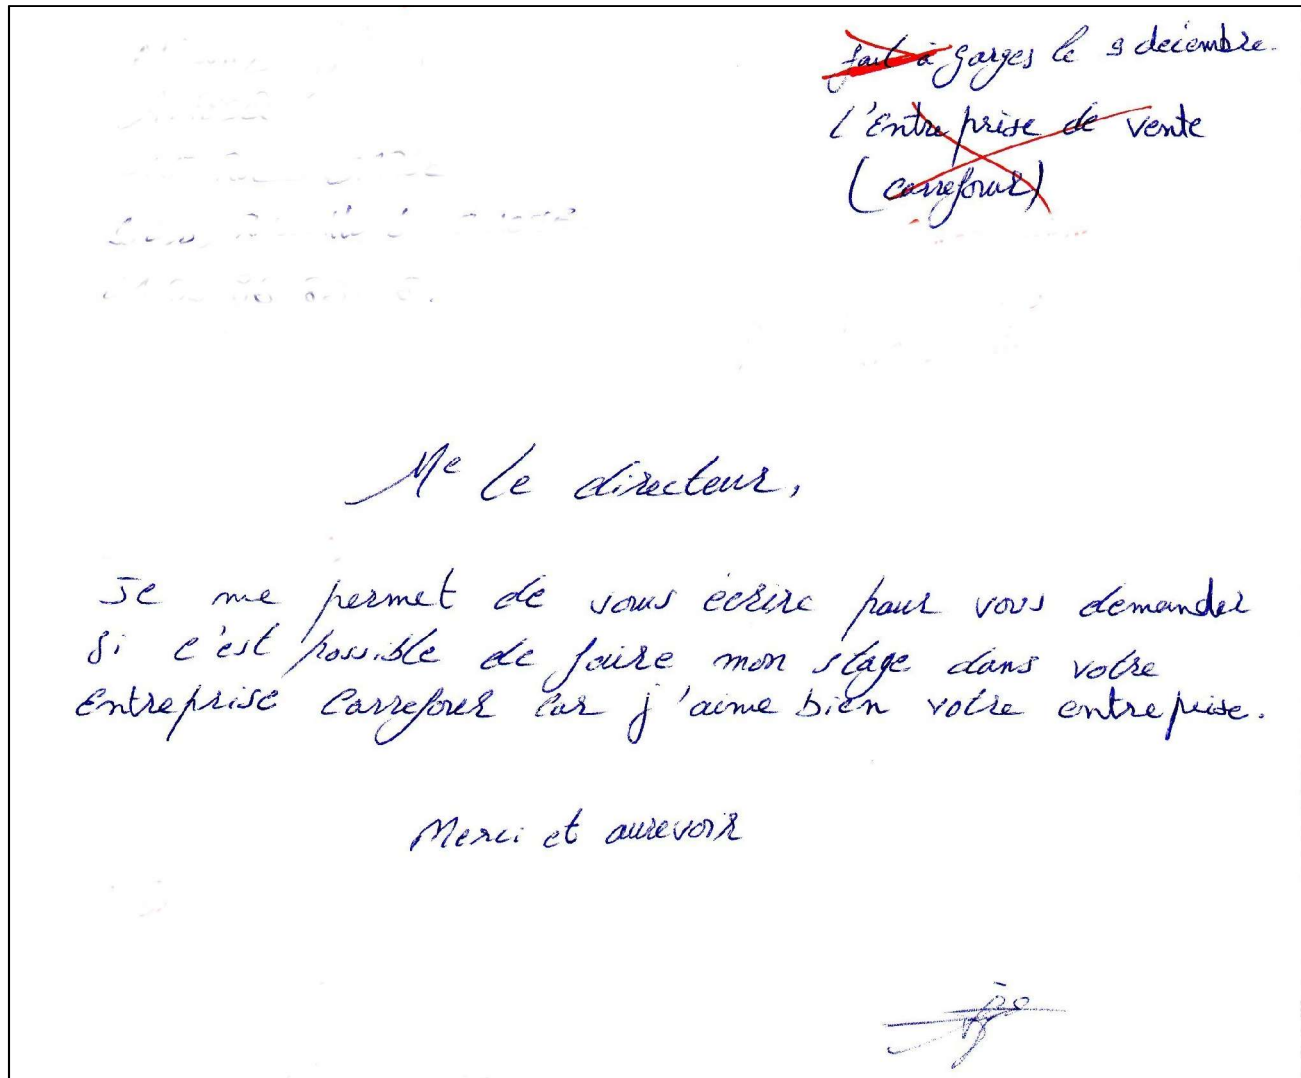 fait à Garges le 9 décembre.
l'Entreprise de vente
(carrefour)
Me le directeur,
Je me permet de vous écrire pour vous demander
si c'est possible de faire mon stage dans votre
entreprise Carrefour car j'aime bien votre entreprise.
Merci et aurevoir